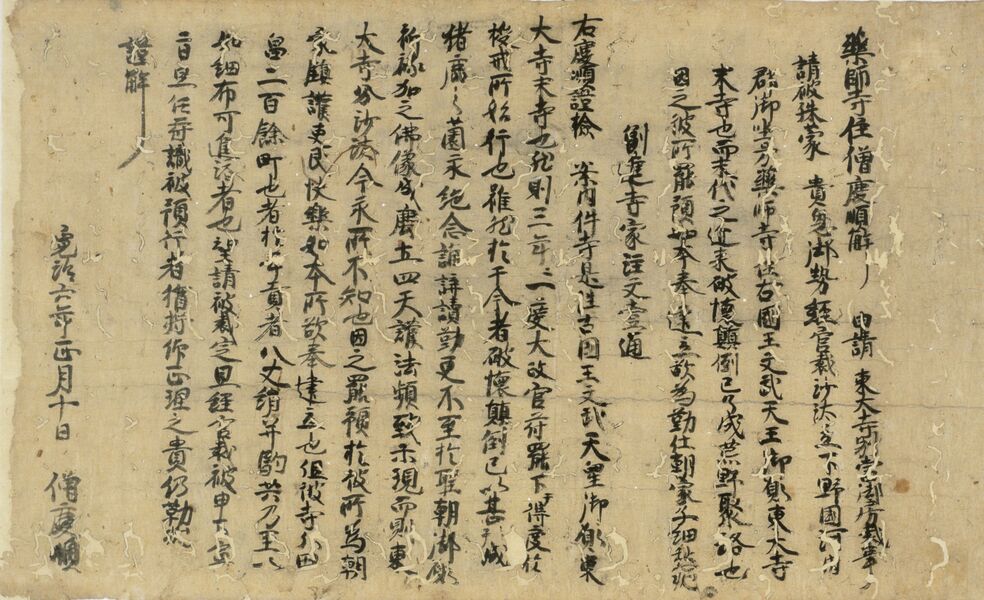 藥師寺住僧慶順解 申請 東大寺別當御房裁事
請被殊蒙 貴鬼御勢經官裁沙汰立下野國河内
郡御坐字藥師寺往古國王文武天王御願東大寺
末寺也而末代之近来破懐顛倒已了成荒野聚洛也
因之彼所罷預如本奉造立欲為勤仕朝家子細愁状
副進寺家注文壹通
右慶順證検 案内件寺是往古國王文武天皇御願東
大寺末寺也然則三年二一度大政官府罷下得度位
授戒所始行也雖然於于今者破懐顛倒已以甚于成
猪鹿之薗永絶念誦許讀勤更不至於聖朝御願
祈祿加之佛像成塵土四天護法頻致示現而則東
大寺分沙汰今永所不知也因之罷預於彼所為朝
家鎮護吏民快樂如本所欲奉建立也但彼寺乃田
畠二百餘町也者於年貢者八丈絹并駒共乃至以
此細布可進済者也望請被裁定且經官裁被申大宣
旨且任符識被預行者将持作正理之貴仍勒状
證解
寛治六年正月十日 僧慶順